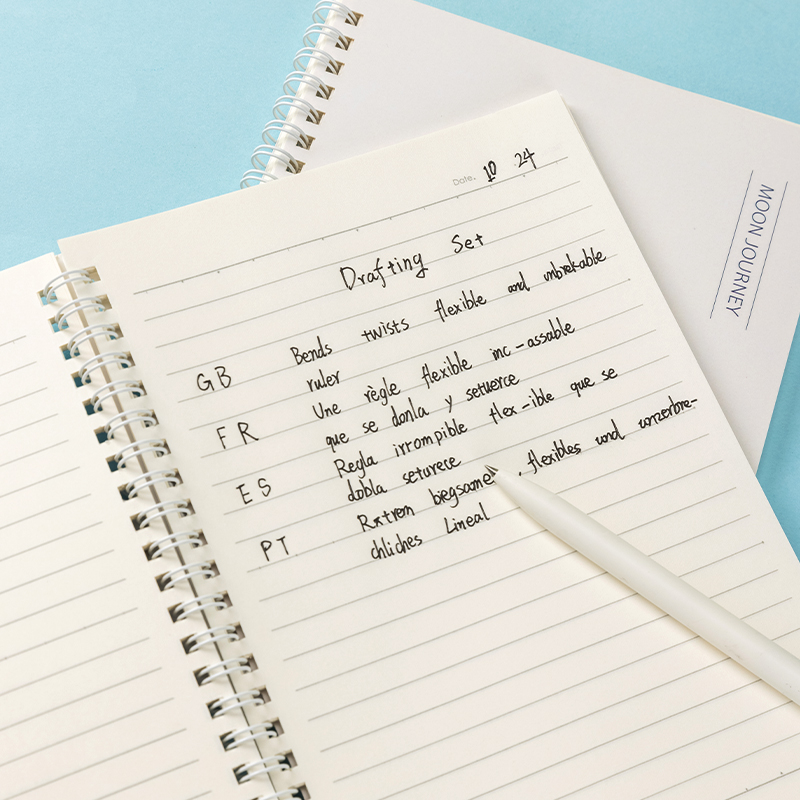 Date. 10 24
Drafting Set
GB Bends twists flexible and unbrekable
ruler
FR Une règle flexible inc-assable
que se donla y setuerce
ES Regla irrompible flex-ible que se
dobla seturece
PT Rxtrem biegsame, flexibles und unzerbre-
chliches Lineal
MOON JOURNEY